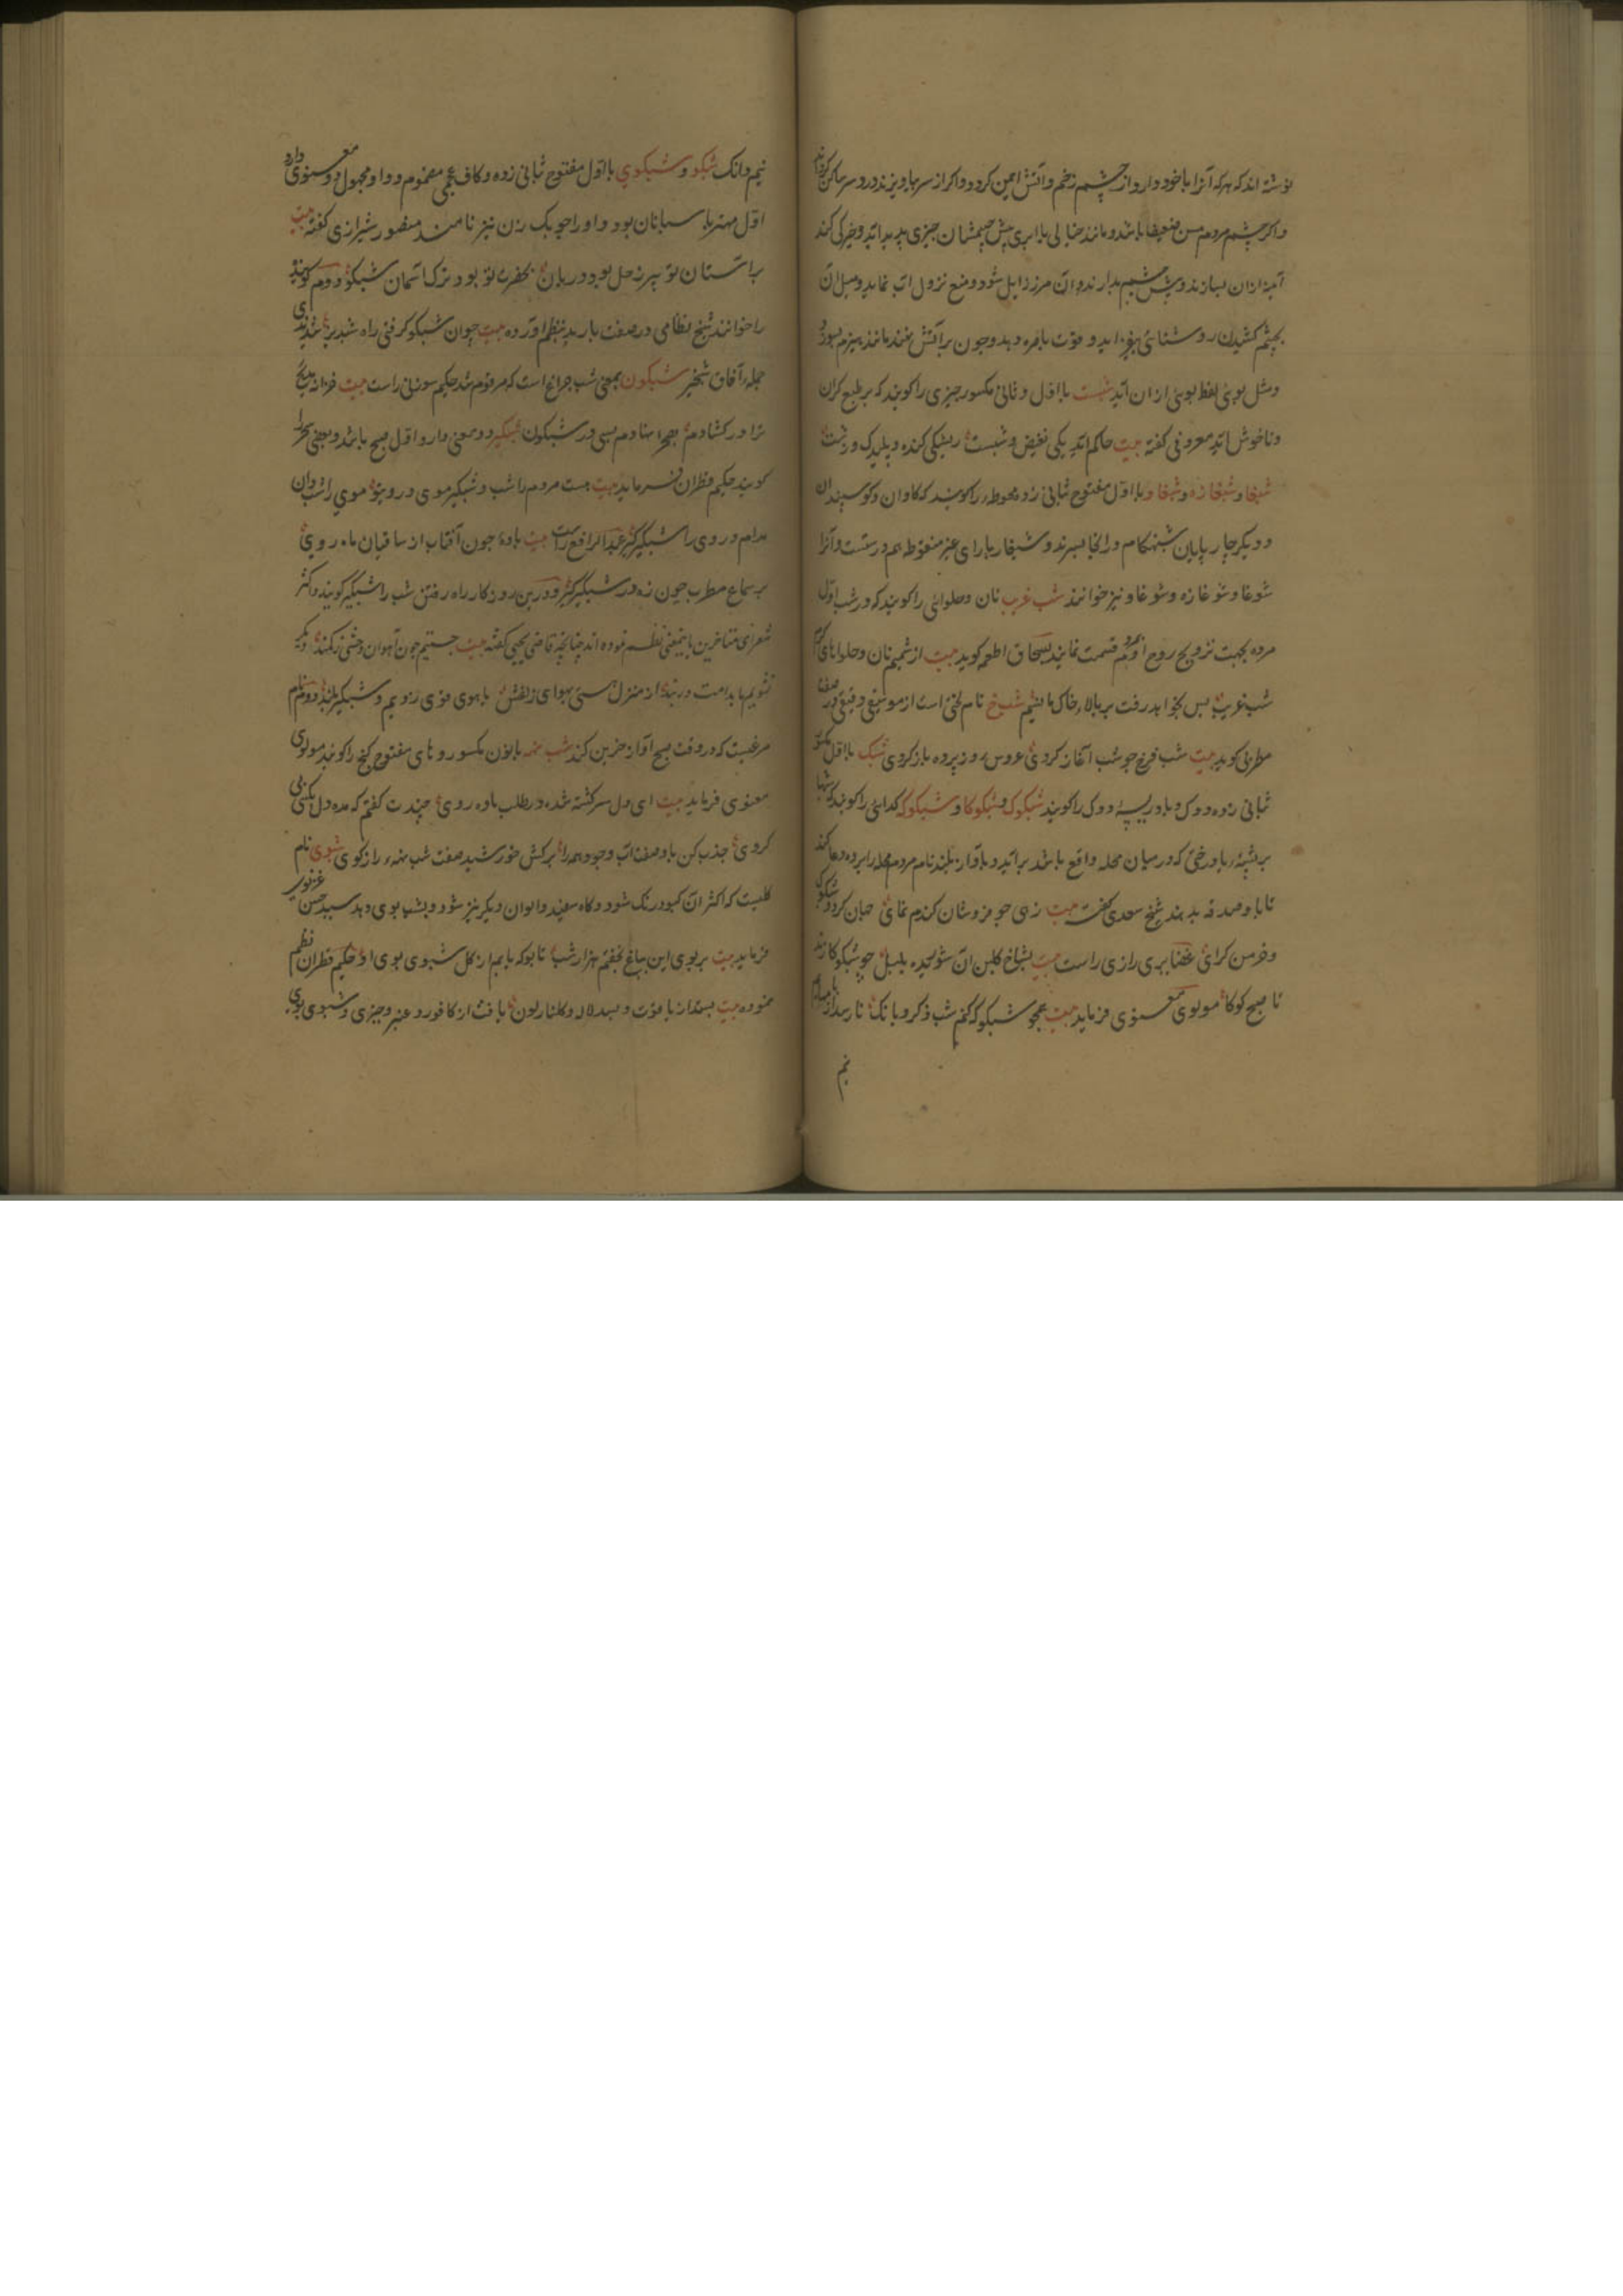 نوشته اند که هر که آنرا با خود دارد از چشم زخم و آتش ایمن کردد و اکر از سر بیاویزند درد سر ساکن کرداند
و اکر چشم مردم مسن ضعیف باشد و مانند خیالی یا ابری پیش چشمشان چیزی پدید اید و خیرکی کند
آینه ازان بسازند و پیش چشم بدارند و آن مرض زایل شود و منع نزول اب نماید و میل آن
بچشم کشیدن روشنائی بیفزاید و قوت باصره دهد و چون بر آتش نهند مانند هیزم بسوزد
و مثل بوی نفط بوی ازان آید شبست با اول و ثانی مکسور چیزی را کویند که بر طبع کران
و ناخوش اید معروفی کفته بیت حاکم اید یکی بغیض و شبست ریشکی کنده و پلیدک و زشت
شبغا و شبغازه و شبغاو با اول مفتوح بثانی زده محوطه را کویند که کاوان و کوسپندان
و دیکر چارپایان شبهنکام در انجا بسر برند و شبغار با رای غیر منقوطه هم درستست و آنرا
شوغا و شوغازه و شوغاو نیز خوانند شب غریب نان و حلوائی را کویند که در شب اول
مرده بجهت ترویح روح او بمردم قسمت نمایند بسحاق اطعمه کوید بیت از شمیم نان و حلواهای کرم
شب غریب بس بخواهد رفت بر بالاء خاک ما نشیم شب فرخ نام لحنی است از موسیقی و فیقی در صفت
مطربی کوید بیت شب فرخ چو شب آغاز کردی عروس روز پرده باز کردی شبک با اول مکسور
بثانی زده دوک و بادریسه دوک را کویند شبکوک و شبکوکا و شبکوکه کدائی را کویند که شبها
بر پشته یا درختی که در میان محله واقع باشد براید و بآواز بلند نام مردم محله را برده دعا کند
تا باو صدقه بدهند شیخ سعدی کفت بیت زهی جو فروشان کندم نمای جهان کرد و شبکوک
و خرمن کدای غضایری رازی راست بیت بشاخ کلبن ان شوریده بلبل چو شبکوکا زند
تا صبح کوکا مولوی معنوی فرماید بیت همچو شبکوکه کنم شب ذکر و بانک تا رسد از بامدادم
نیم
نیم دانک شبکو و شبکوی با اول مفتوح بثانی زده و کاف عجمی مضموم و واو مجهول دو معنی دارد
اول مهتر پاسبانان بود و او را چوبک زن نیز نامند منصور شیرازی کفته بیت
بر آستان تو پیر زحل بود دربان بحضرت تو بود ترک آسمان شبکو دوم کوینده
را خوانند شیخ نظامی در صفت باربد بنظم آورده بیت چوان شبکو کرفتی راه شبدیز شدندی
جمله آفاق شبخیز شبکون بمعنی شب چراغ است که مرقوم شد حکیم سوزنی راست بیت خزانه مدح
ترا در کشادم بهجرا نهادم بسی در شبکون شبکیر دو معنی دارد اول صبح باشد و بعضی سحر را
کویند حکیم قطران فرماید بیت هست مردم را شب و شبکیر موی و روی تو موی را شب دان
مدام و روی را شبکیر کیر عبد الرافع راست بیت باده چون آفتاب از ساقیان ماه روی
بر سماع مطرب چون زهره در شبکیر کیر و درین روزکار راه رفتن شب را شبکیر کویند و اکثر
شعرای متاخرین باینمعنی نظم نموده اند چنانچه قاضی یحیی کفته بیت جستیم چون آهوان وحشی ز کمند دیکر
نشویم پایدامت در بند از منزل هستی بهوای زلفش باهوی فوی زدیم و شبکیر بلند دوم نام
مرغیست که در وقت صبح آواز حزین کند شب نه با نون مکسور و های مفتوح کنج را کویند مولوی
معنوی فرماید بیت ای دل سرکشته شده در طلب یاوه روی چندت کفتم که مده دل بکسی بی
کروی جذب کن با وصفت اب وجود همه را برکش خورشید صفت شب نمه را ز کوی شبوی نام
کلیست که اکثر آن کبود رنک شود و کاه سفید و الوان دیکر نیز شود و بشب بوی دهد سید حسن غزنوی
فرماید بیت بر بوی این بباغ بخفتم هزار شب تا بوکه یابم از کل شبوی بوی او حکیم قطران نظم
نموده بیت بستد از یاقوت و بسد لاله و کلنار لون یافت از کافور و عنبر و جیزی و شبوی بوی